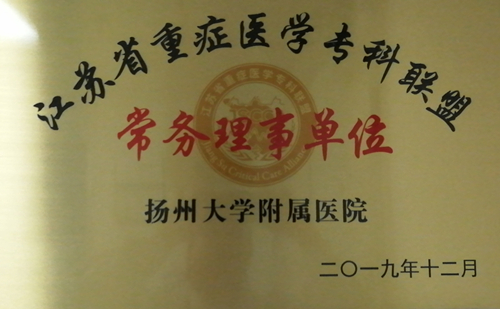 江苏省重症医学专科联盟
常务理事单位
扬州大学附属医院
二〇一九年十二月